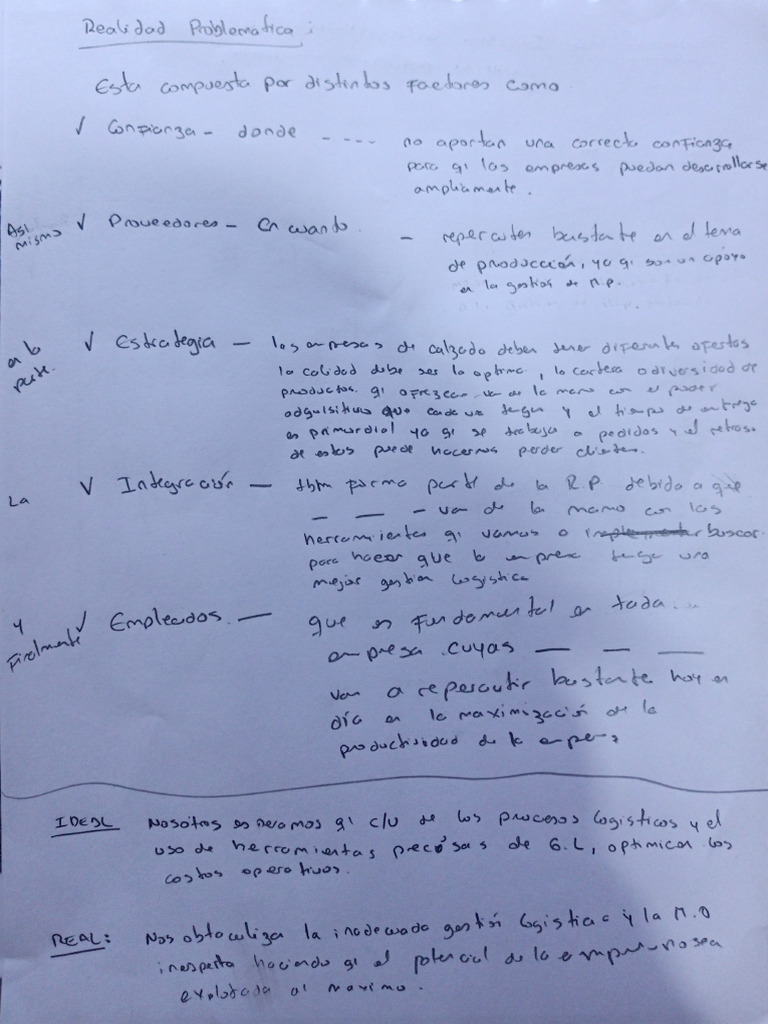 Realidad Problematica :
Esta compuesta por distintos factores como
✓ Confianza - donde - - - - no aportan una correcta confianza
para q las empresas puedan desarrollarse
ampliamente.
Asi mismo ✓ Proveedores - En cuando. - repercuten bastante en el tema
de producción, ya q son un apoyo
en la gestion de M.P.
en la parte. ✓ Estrategia - las empresas de calzado deben tener diferentes ofertas
la calidad debe ser la optima, la cartera o diversidad de
productos. q ofrezcan va de la mano con el poder
adquisitivo que cada uno tenga y el tiempo de entrega
es primordial ya q se trabaja a pedidos y el retraso
de estos puede hacernos perder clientes.
La ✓ Integración - tbm forma parte de la R.P. debido a que
- - - van de la mano con las
herramientas q vamos a buscar
para hacer que la empresa tenga una
mejor gestion logistica
Y Finalmente ✓ Empleados. - que es fundamental en toda...
empresa cuyas - - -
van a repercutir bastante hoy en
día en la maximización de la
productividad de la
IDEAL Nosotros esperamos q c/u de los procesos logisticos y el
uso de herramientas precisas de G.L, optimicen los
costos operativos.
REAL: Nos obstaculiza la inadecuada gestión logistica y la M.O
inexperta haciendo q el potencial de la empresa no sea
explotada al maximo.